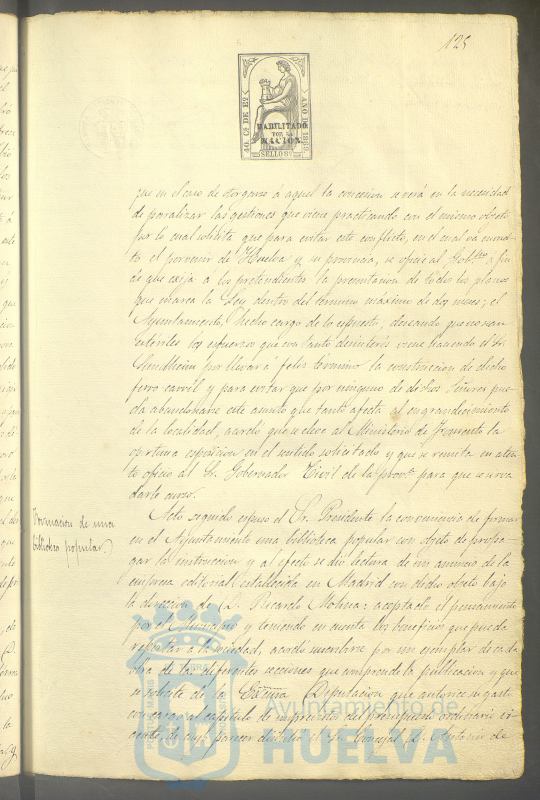 125
40 Cs DE Eo
AÑO DE 1869
HABILITADO
POR LA
NACION
SELLO 8º
que en el caso de otorgarse á aquel la concesion se verá en la necesidad
de paralizar las gestiones que viene practicando con el mismo objeto
por lo cual solicita que para evitar este conflicto, en el cual va envuel-
to el porvenir de Huelva y su provincia, se oficie al Gobno á fin
de que exija á los pretendientes la presentacion de todos los planos
que marca la Ley dentro del termino maximo de dos meses; el
Ayuntamiento, hecho cargo de lo espuesto, deseando que no sean
esteriles los esfuerzos que con tanto desinterés viene haciendo el Sr.
Sundheim por llevar á feliz término la construccion de dicho
ferro carril y para evitar que por ninguno de dichos Señores pue-
da abandonarse este asunto que tanto afecta al engrandecimiento
de la localidad, acordó que se eleve al Ministerio de Fomento la
oportuna esposicion en el sentido solicitado y que se remita en aten-
to oficio al Sr. Gobernador Civil de la prova para que se sirva
darle curso.
Formacion de una
biblioteca popular.
Acto seguido espuso el Sr. Presidente la conveniencia de formar
en el Ayuntamiento una biblioteca popular con objeto de propa-
gar la instruccion y al efecto se dió lectura de un anuncio de la
empresa editorial establecida en Madrid con dicho objeto bajo
la direccion de D. Ricardo Molina: aceptado el pensamiento
por el Municipio y teniendo en cuenta los beneficios que pueda
reportar á la sociedad, acordó suscribirse por un ejemplar de cada
obra de las diferentes secciones que comprende la publicacion y que
se solicite de la Exma Diputacion que autorice su gasto
con cargo al capítulo de imprevistos del presupuesto ordinario vi-
cente, de cuyo parecer disintió el Sr. Concejal D. Antonio de
Ayuntamiento de
HUELVA